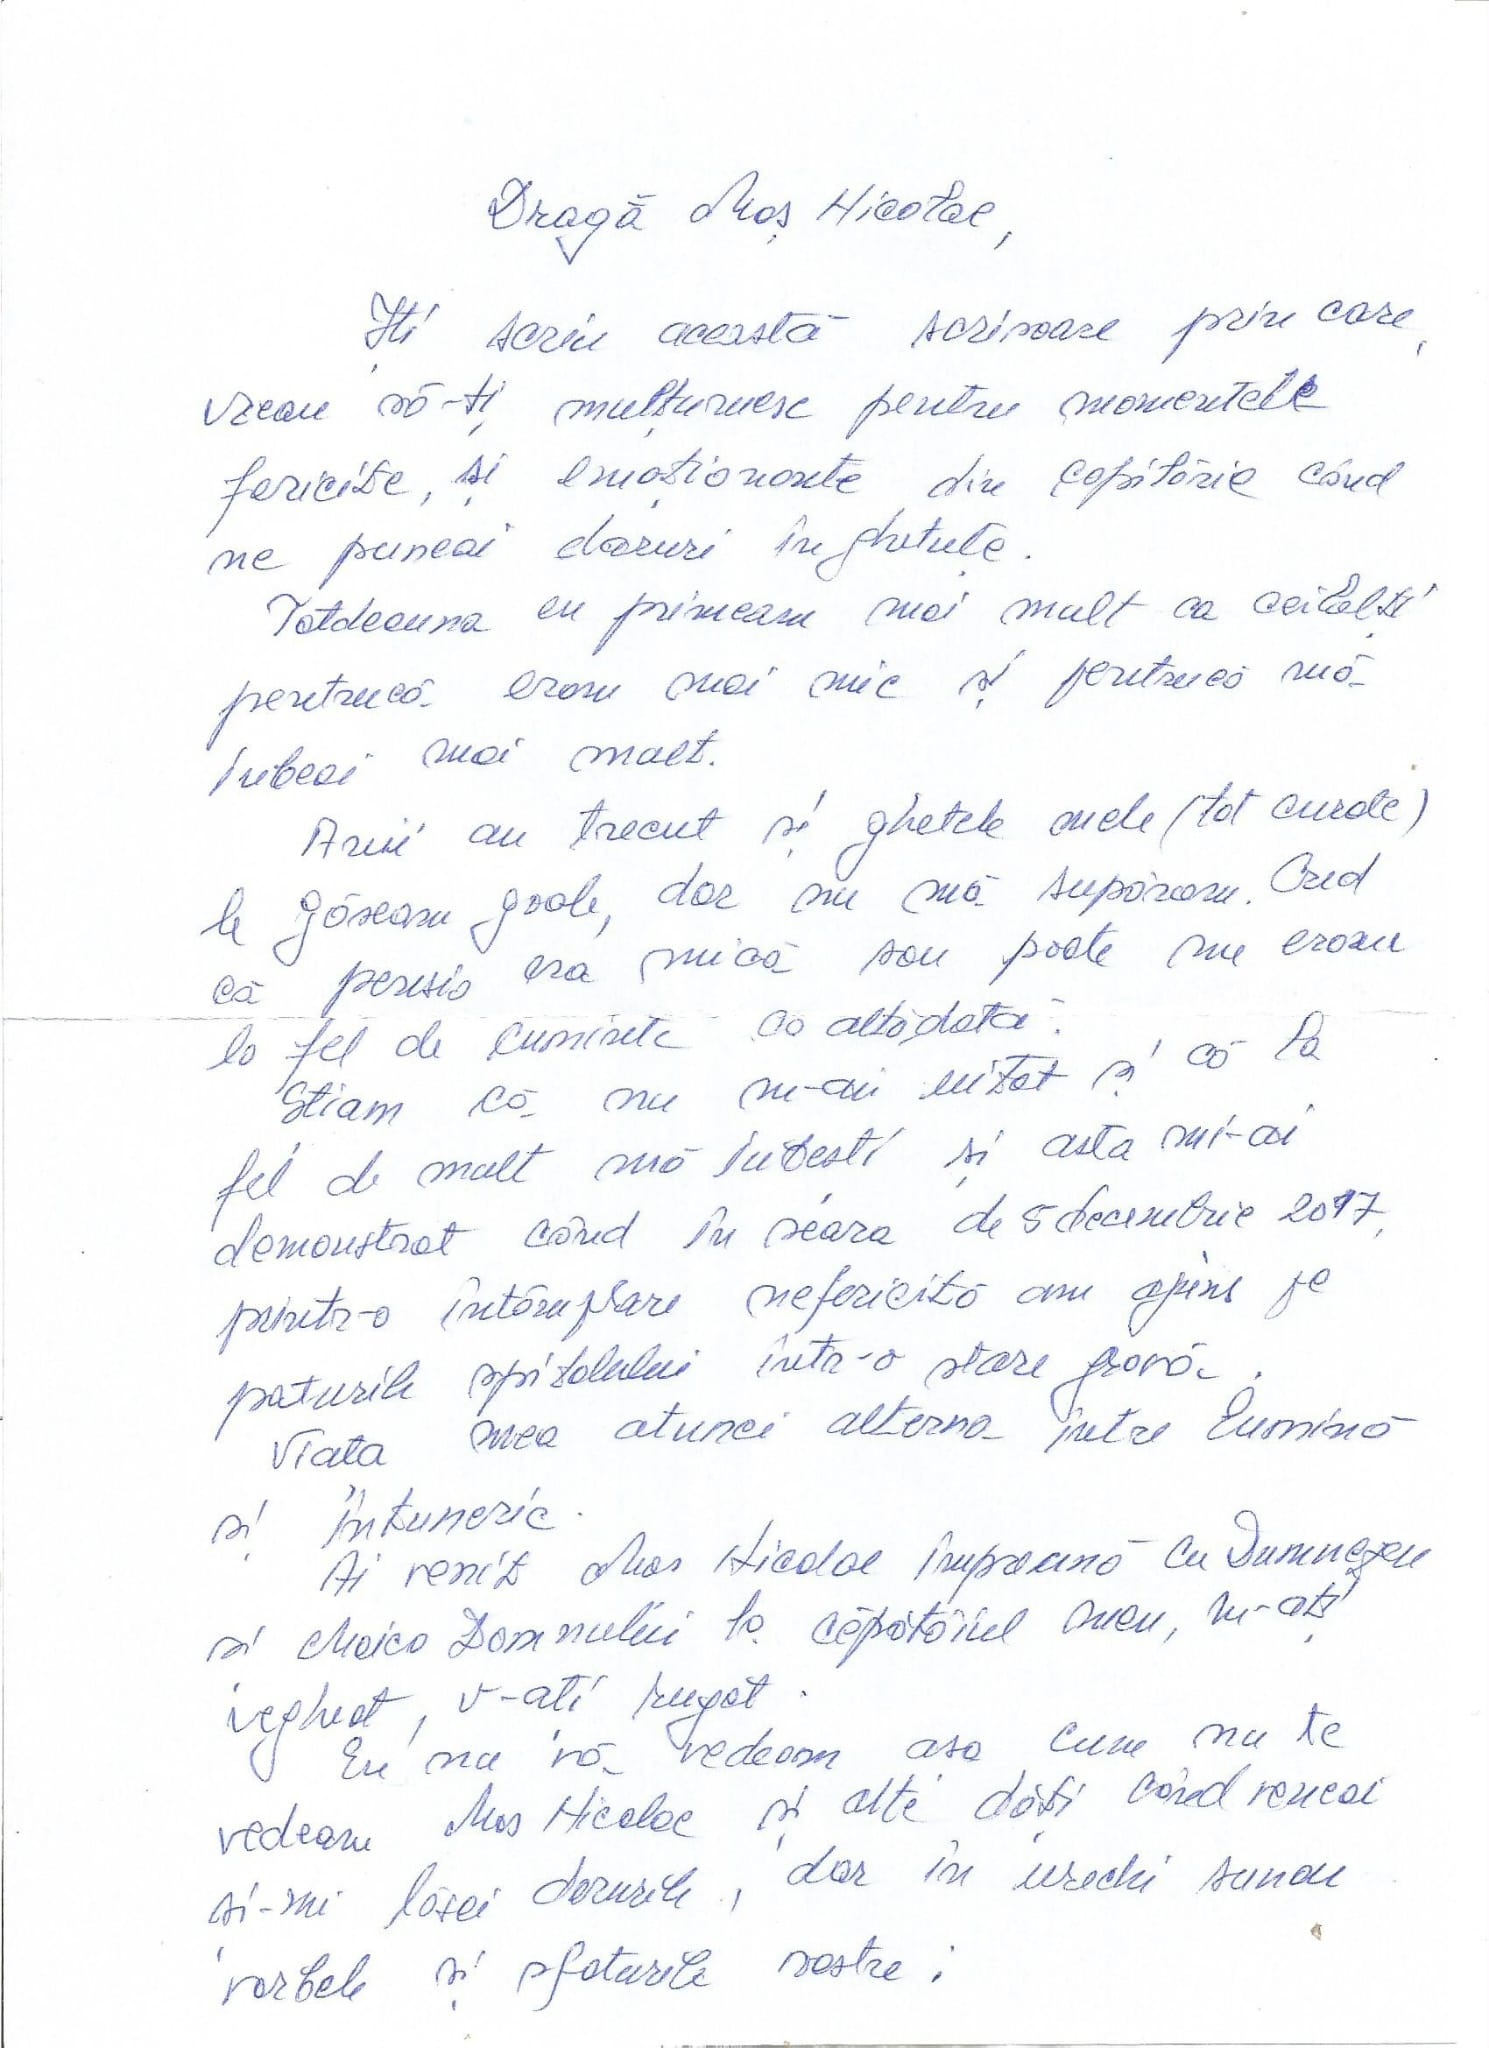 Dragă Moș Nicolae,
Iți scriu această scrisoare prin care,
vreau să-ți mulțumesc pentru momentele
fericite, și emoționante din copilărie când
ne puneai daruri în ghetuțe.
Totdeauna eu primeam mai mult ca ceilalți
pentrucă eram mai mic și pentrucă mă
iubeai mai mult.
Anii au trecut și ghetele mele (tot curate)
le găseam goale, dar nu mă supăram. Cred
că pensia era mică sau poate nu eram
la fel de cuminte ca altădată.
Stiam că nu m-ai uitat și că la
fel de mult mă iubesti și asta mi-ai
demonstrat când în seara de 5 decembrie 2017,
printr-o întâmplare nefericită am ajuns pe
paturile spitalului într-o stare gravă.
Viata mea atunci alterna între lumină
și întuneric.
Ai venit Mos Nicolae împreună cu Dumnezeu
si Maica Domnului la căpătâiul meu, m-ați
vegheat, v-ati rugat.
Eu nu vă vedeam asa cum nu te
vedeam Mos Nicolae și alte dăți când veneai
si-mi lăsai darurile, dar în urechi sunau
vorbele și sfaturile voastre: